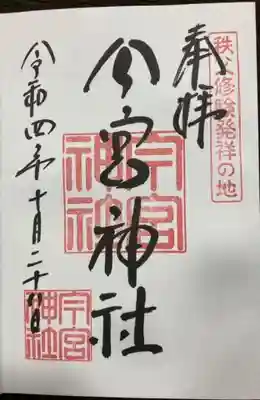 秩父修験発祥の地
奉拝
今宮神社
今宮神社
令和四年十月二十八日
今宮神社